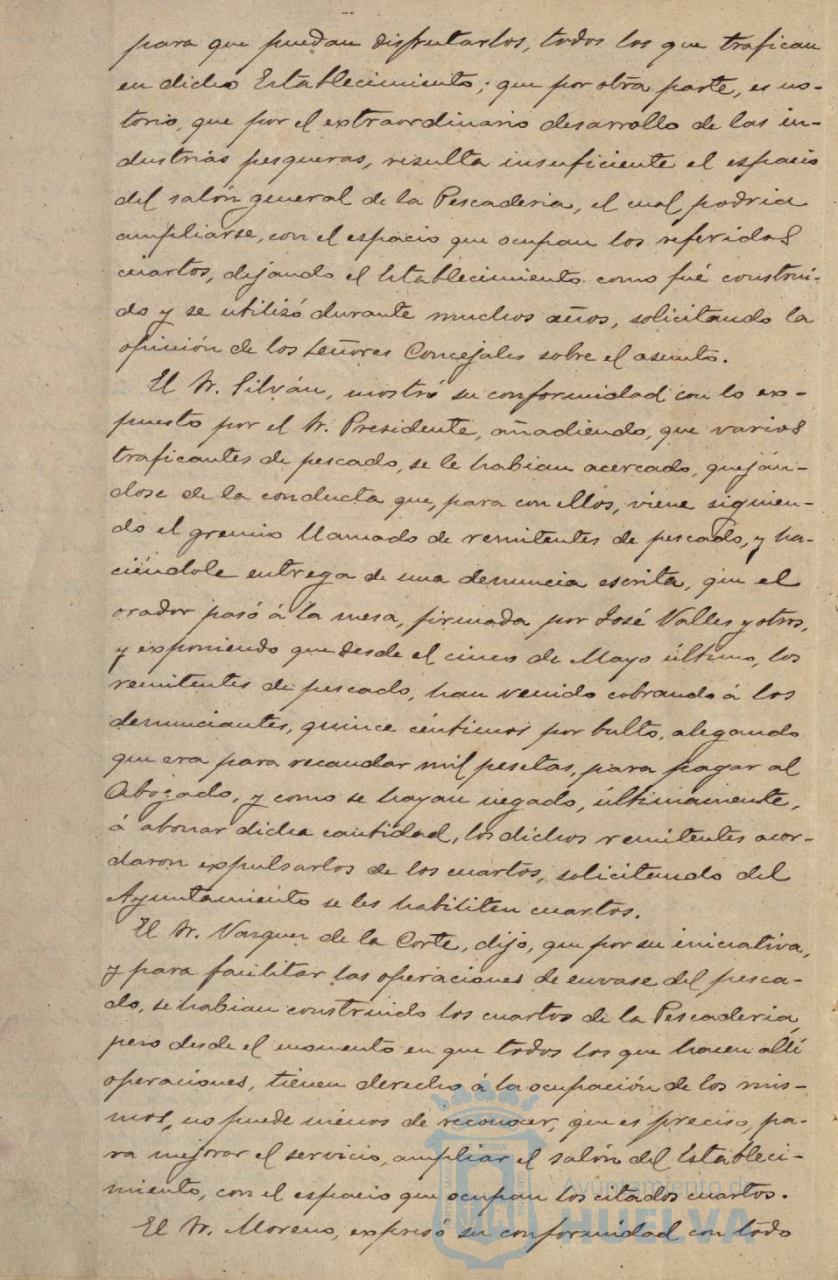 para que puedan disfrutarlos, todos los que trafican
en dicho Establecimiento; que por otra parte, es no-
torio, que por el extraordinario desarrollo de las in-
dustrias pesqueras, resulta insuficiente el espacio
del salón general de la Pescaderia, el cual, podria
ampliarse, con el espacio que ocupan los referidos
cuartos, dejando el Establecimiento como fué construi-
do y se utilizó durante muchos años, solicitando la
opinión de los Señores Concejales sobre el asunto.
El Sr. Silván, mostró su conformidad con lo ex-
puesto por el Sr. Presidente, añadiendo, que varios
traficantes de pescado, se le habian acercado, queján-
dose de la conducta que, para con ellos, viene siguien-
do el gremio llamado de remitentes de pescado, y ha-
ciéndole entrega de una denuncia escrita, que el
orador pasó á la mesa, firmada por José Valles y otros,
y exponiendo que desde el cinco de Mayo último, los
remitentes de pescado, han venido cobrando á los
denunciantes, quince céntimos por bulto, alegando
que era para recaudar mil pesetas, para pagar al
Abogado, y como se hayan negado, últimamente,
á abonar dicha cantidad, los dichos remitentes acor-
daron expulsarlos de los cuartos, solicitando del
Ayuntamiento se les habiliten cuartos.
El Sr. Vazquez de la Corte, dijo, que por su iniciativa,
y para facilitar las operaciones de envase del pesca-
do, se habian construido los cuartos de la Pescaderia,
pero desde el momento en que todos los que hacen allí
operaciones, tienen derecho á la ocupación de los mis-
mos, no puede menos de reconocer, que es preciso, pa-
ra mejorar el servicio, ampliar el salón del Estableci-
miento, con el espacio que ocupan los citados cuartos.
El Sr. Moreno, expresó su conformidad con todo
Ayuntamiento de
HUELVA